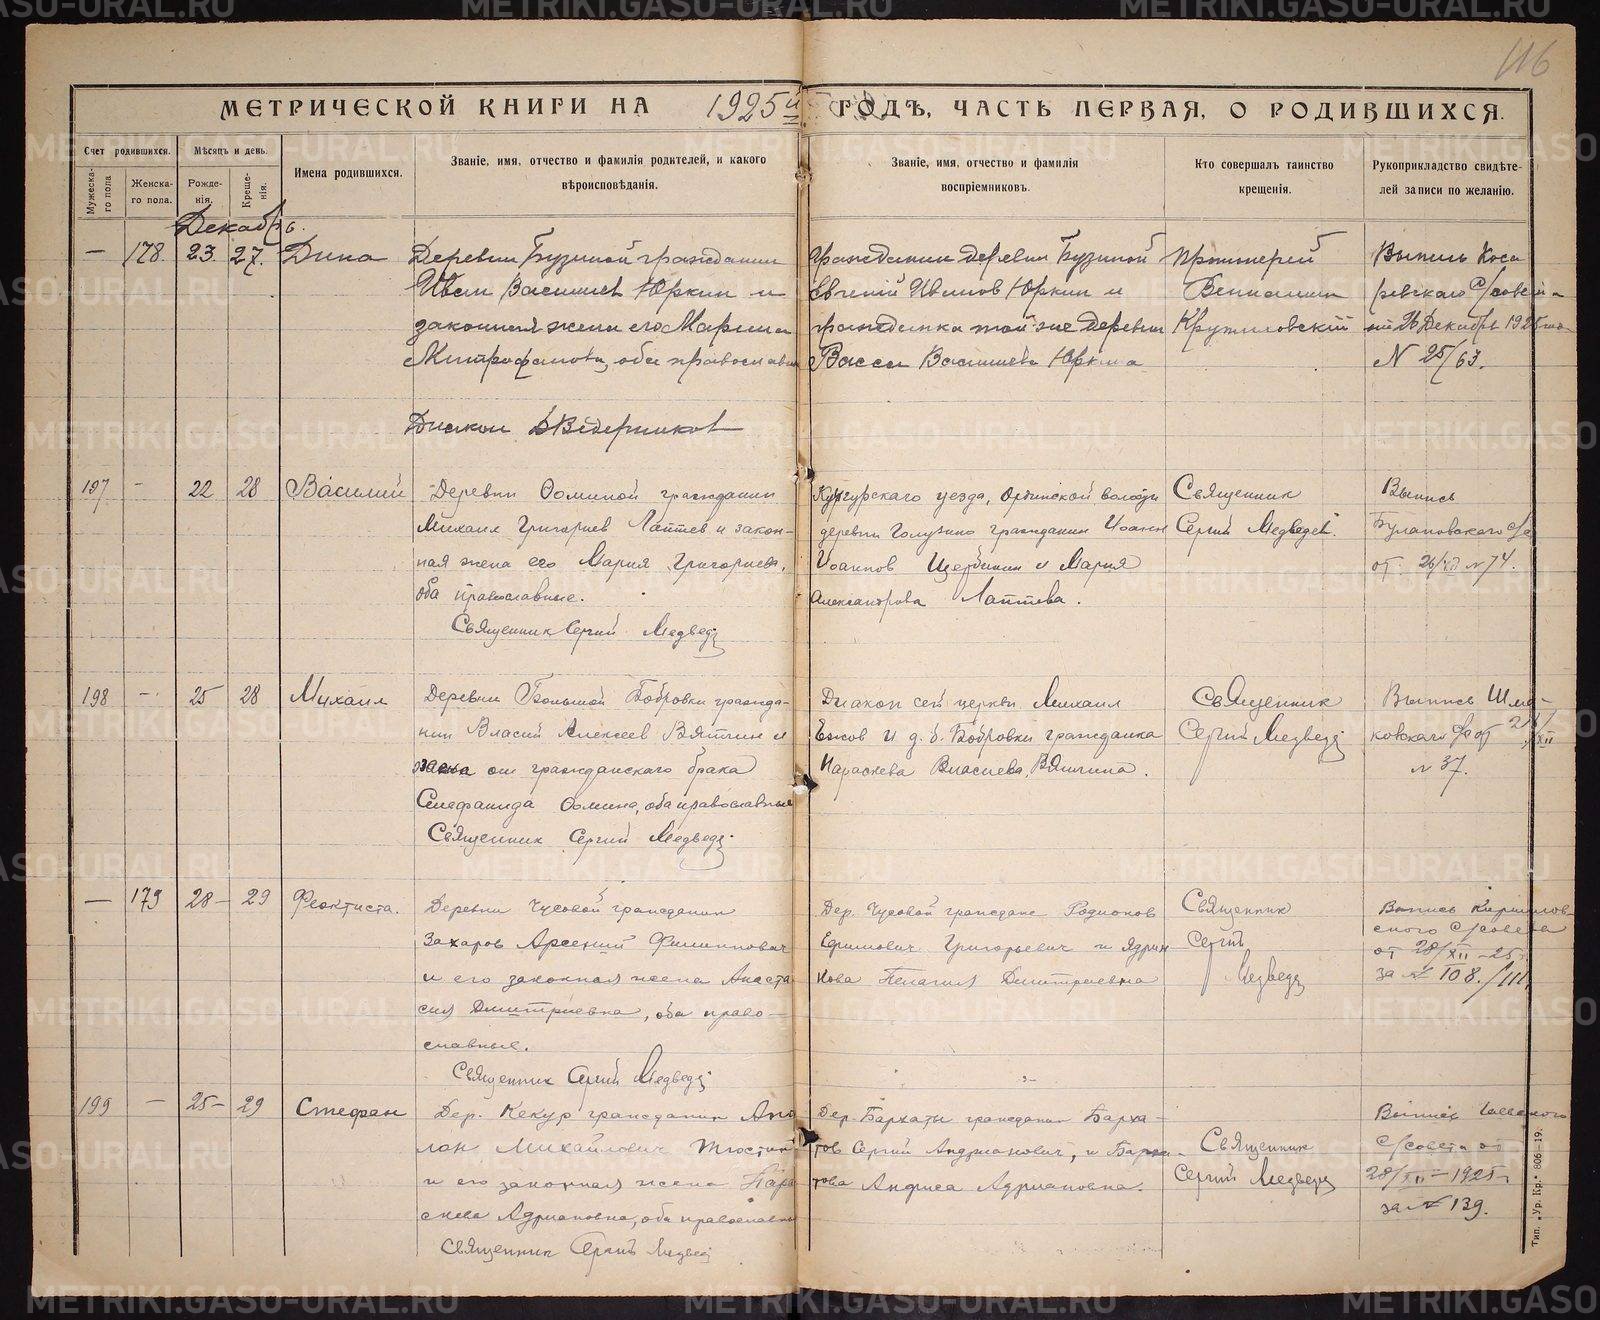 116
МЕТРИЧЕСКОЙ КНИГИ НА 1925й ГОДЪ, ЧАСТЬ ПЕРВАЯ, О РОДИВШИХСЯ.
Счет родившихся.
Мужеска-го пола
Женска-го пола.
Мѣсяцъ и день.
Рожде-нія.
Креще-нія.
Имена родившихся.
Званіе, имя, отчество и фамилія родителей, и какого
вѣроисповѣданія.
Званіе, имя, отчество и фамилія
воспріемниковъ.
Кто совершалъ таинство
крещенія.
Рукоприкладство свидѣте-
лей записи по желанію.
Декабрь.
— 178. 23. 27. Дина
Деревни Бузиной гражданин
Иван Васильев Юркин и
законная жена его Марина
Митрофанова, оба православн
Диакон Ведерников
Гражданин деревни Бузиной
Евгений Иванов Юркин и
гражданка той же деревни
Васса Васильева Юркина
Протоиерей
Вениамин
Выпись
N 25/63.
197 - 22 28 Василий
Деревни Фоминой гражданин
Михаил Григориев Лаптев и закон-
ная жена его Мария Григориева,
оба православные.
Священник Сергий Медведев
Кунгурскаго уезда, Ординской волости
деревни Голузино гражданин Иоанн
Иоаннов Щербинин и Мария
Александрова Лаптева.
Священник
Сергий Медведев.
Выпись
Булановскаго с/с
от 26/XII N 74.
198 - 25 28 Михаил
Деревни Большой Бобровки гражда-
нин Власий Алексеев Вяткин и
гражданскаго брака
Стефанида Фомина, оба православные
Священник Сергий Медведев
Диакон сей церкви Михаил
Ежов и д. б. Бобровки гражданка
Параскева Власиева Вяткина.
Священник
Сергий Медведев
Выпись
N 37.
— 179 28 - 29 Феоктиста.
Деревни Чусовой гражданин
Захаров Арсений Филиппович
и его законная жена Анаста
сия Дмитриевна, оба право-
славные.
Священник Сергий Медведев
Дер. Чусовой граждане Родионов
Ефимович Григорьевич и Ядрин
кова Пелагия Дмитриевна
Священник
Сергий
Медведев
Выпись Кирилов-
ского С/совета
от 28/XII - 25 г.
за № 108./III
199 — 25 - 29 Стефан
Дер. Кекур гражданин
Михайлович
и его законная жена Пара
скева Адриановна, оба православн
Священник Сергий Медведев
Дер. Бархаты гражданин Барха-
тов Сергий Андрианович, и Барха-
това Анфиса Адриановна.
Священник
Сергий Медведев
Выпись
С/совета от
28/XII - 1925 г.
за № 139.
Тип. „Ур. Кр." 806—19.
METRIKI.GASO-URAL.RU